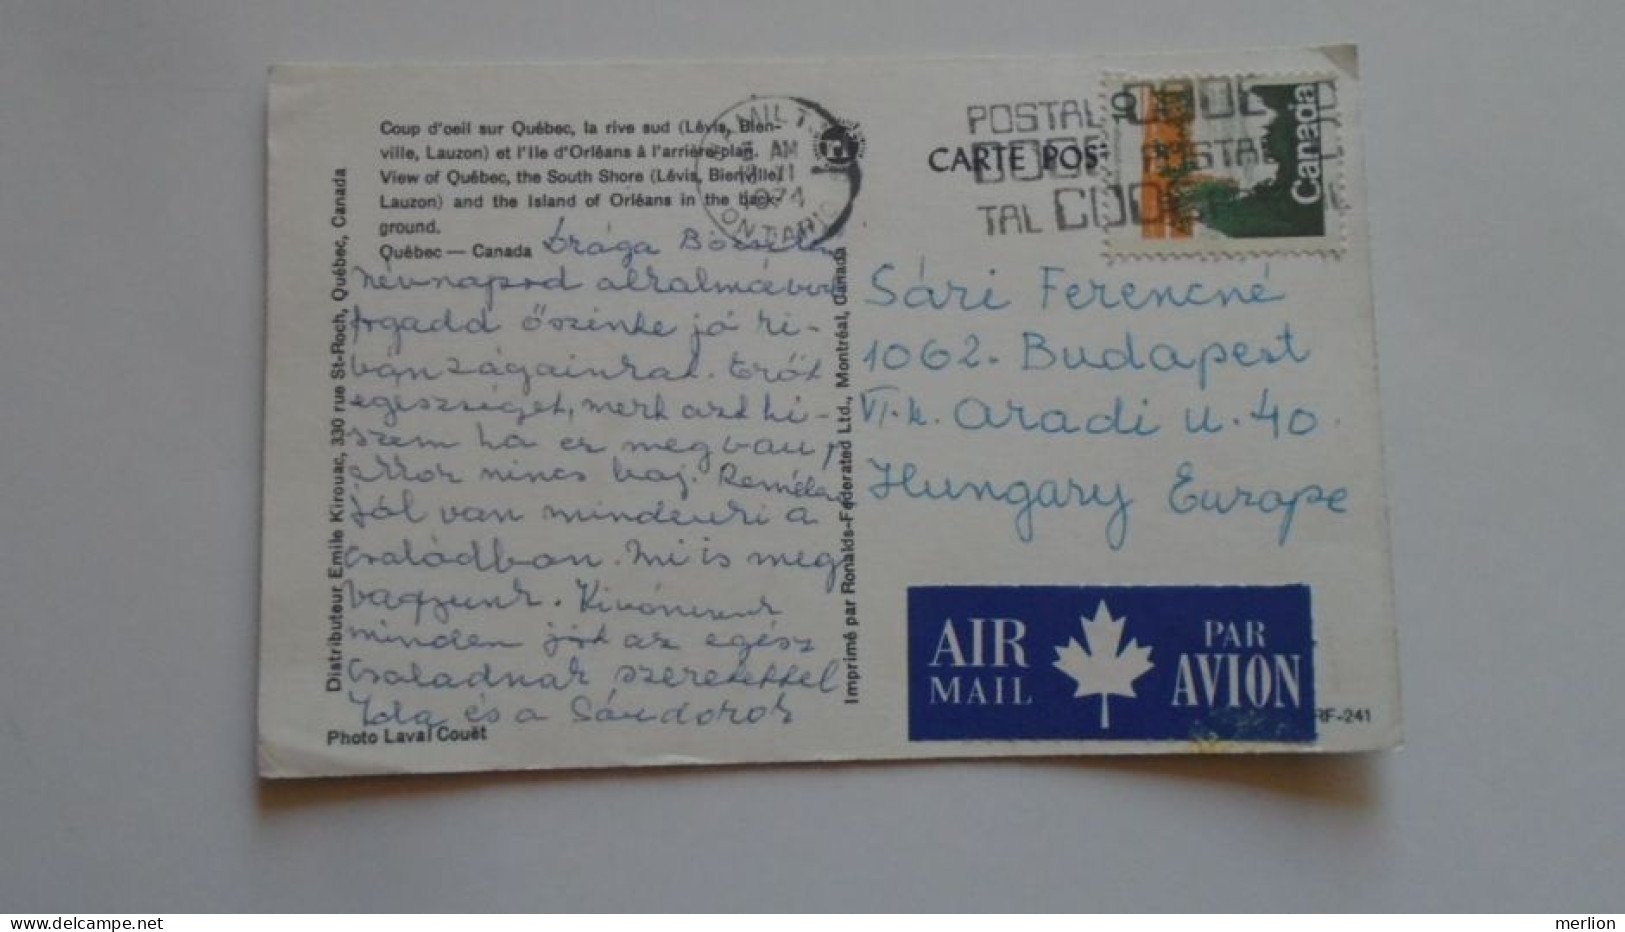 Coup d'oeil sur Québec, la rive sud (Lévis, Bien-
ville, Lauzon) et l'Ile d'Orléans à l'arrière-plan.
View of Québec, the South Shore (Lévis, Bienville,
Lauzon) and the Island of Orléans in the back-
ground.
Québec — Canada
Drága
névnapod alkalmával
fogadd őszinte jó ki-
vánságainkat. Erőt
egészséget, mert azt hi-
szem ha ez megvan,
akkor nincs baj. Remélem
jól van mindenki a
családban. Mi is meg
vagyunk. Kivánunk
minden jót az egész
családnak szeretettel
Ida és a Sándorok
Photo Laval Couët
Distributeur Emile Kirouac, 330 rue St-Roch, Québec, Canada
Imprimé par Ronalds-Federated Ltd., Montréal, Canada
HAMILTON
AM
1974
ONTARIO
CARTE POS
POSTAL
CODE
POSTAL
CODE
Canada
10
Sári Ferencné
1062. Budapest
VI.k. Aradi u. 40.
Hungary Europe
AIR
MAIL
PAR
AVION
RF-241
merlion